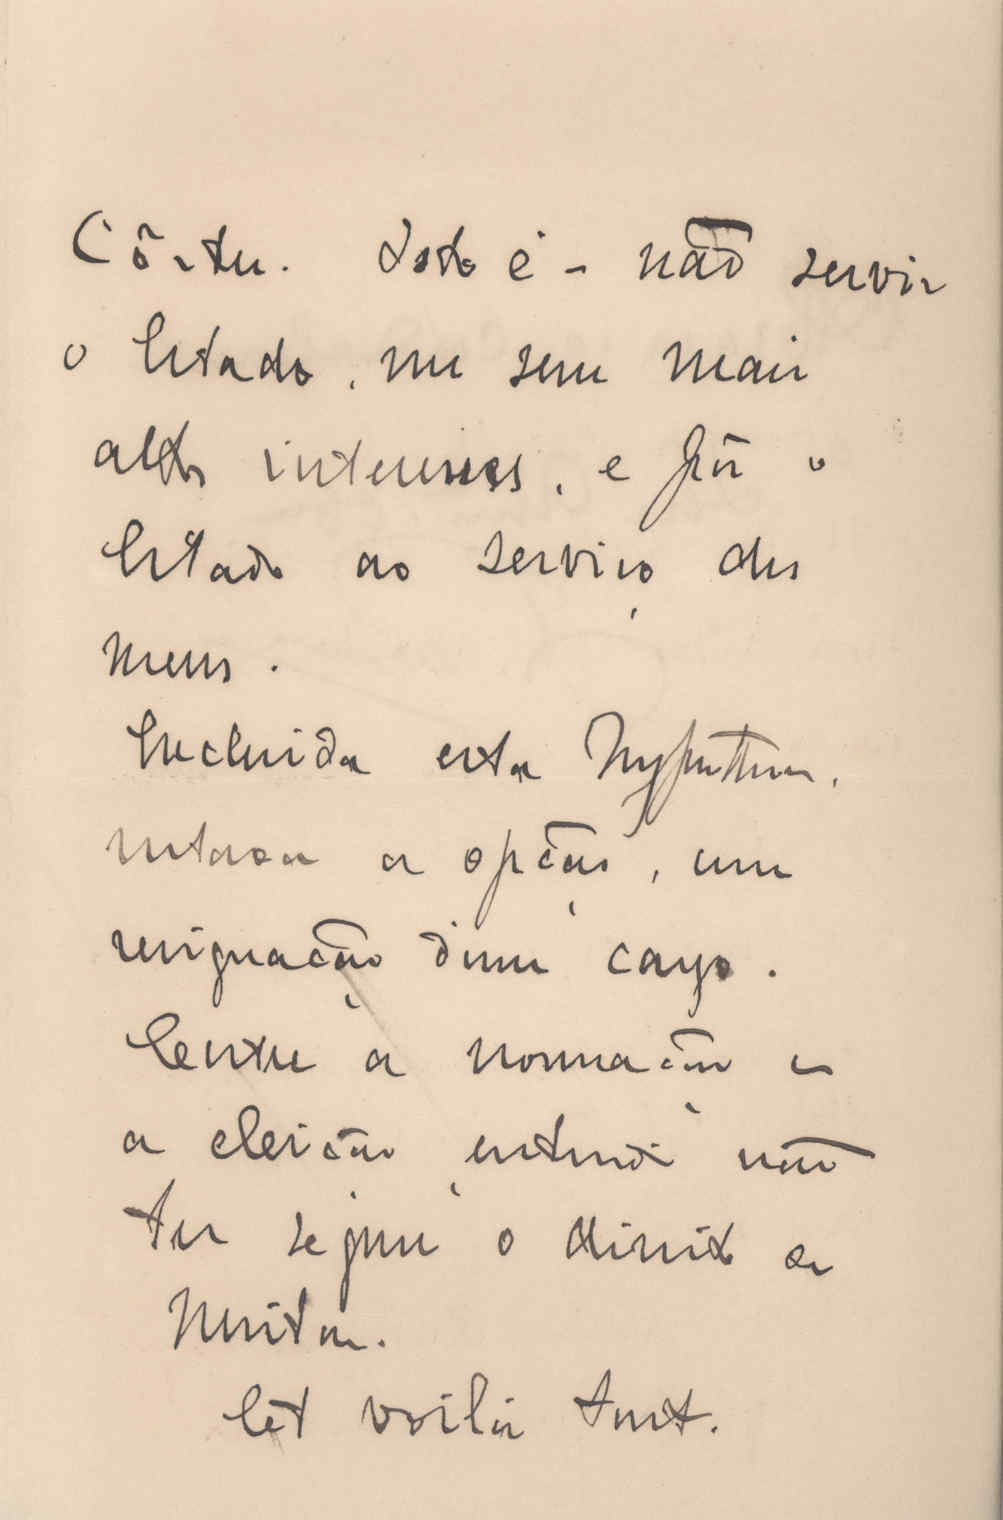 Côrtes. Isto é - não servir
o Estado, nos seus mais
altos interesses, e pôr o
Estado ao serviço dos
meus.
Excluida esta hypothese,
restava a opção, com
resignação d'um cargo.
Entre a nomeação e
a eleição, entendi não
ter sequer o direito de
hesitar.
Et voilà tout.